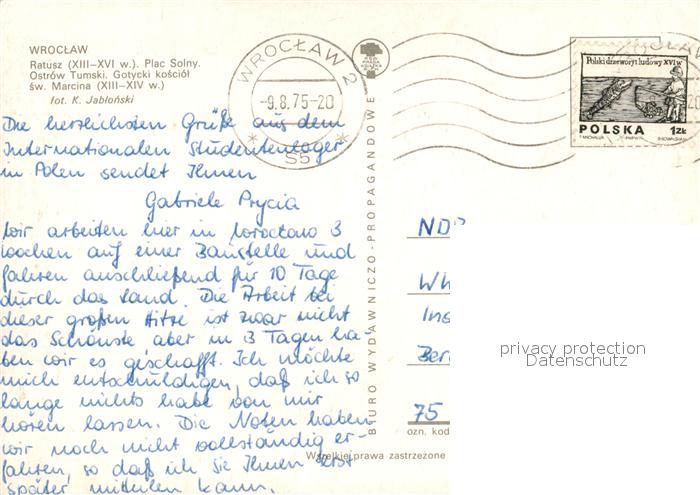 WROCŁAW
Ratusz (XIII–XVI w.). Plac Solny.
Ostrów Tumski. Gotycki kościół
św. Marcina (XIII–XIV w.)
fot. K. Jabłoński
WROCŁAW 2
-9.8.75-20
S5
Polski drzeworyt ludowy XVI w
POLSKA 1zł
Die herzlichsten Grüße aus dem
Internationalen Studentenlager
in Polen sendet Ihnen
Gabriele Prycia
Wir arbeiten hier in Wrocław 3
Wochen auf einer Baustelle und
fahren anschließend für 10 Tage
durch das Land. Die Arbeit bei
dieser großen Hitze ist zwar nicht
das Schönste aber in 3 Tagen ha-
ben wir es geschafft. Ich möchte
mich entschuldigen, daß ich so
lange nichts habe von mir
hören lassen. Die Noten haben
wir noch nicht vollständig er-
fahren, so daß ich Sie Ihnen erst
später mitteilen kann.
BIURO WYDAWNICZO-PROPAGANDOWE
ND
Wh
Ins
Ber
75
ozn. kod
Wszelkie prawa zastrzeżone
privacy protection
Datenschutz